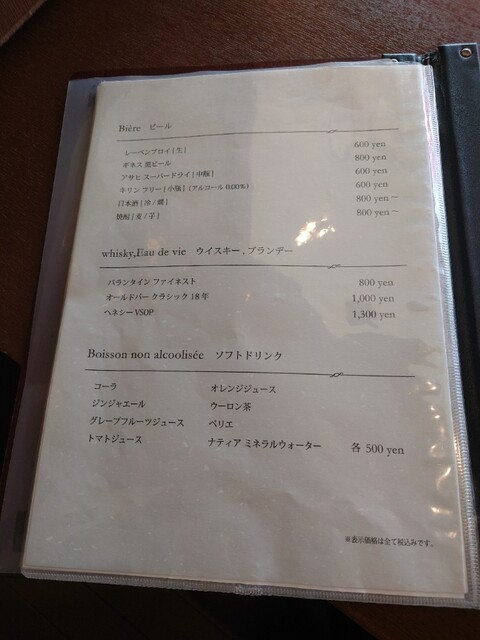 Bière ビール
レーベンブロイ [ 生 ] 600 yen
ギネス 黒ビール 800 yen
アサヒ スーパードライ [ 中瓶 ] 600 yen
キリン フリー [ 小瓶 ] (アルコール 0.00%) 600 yen
日本酒 [ 冷 / 燗 ] 800 yen～
焼酎 [ 麦 / 芋 ] 800 yen～
whisky,Eau de vie ウイスキー , ブランデー
バランタイン ファイネスト 800 yen
オールドパー クラシック 18 年 1,000 yen
ヘネシー VSOP 1,300 yen
Boisson non alcoolisée ソフトドリンク
コーラ オレンジジュース
ジンジャエール ウーロン茶
グレープフルーツジュース ペリエ
トマトジュース ナティア ミネラルウォーター 各 500 yen
※表示価格は全て税込みです。